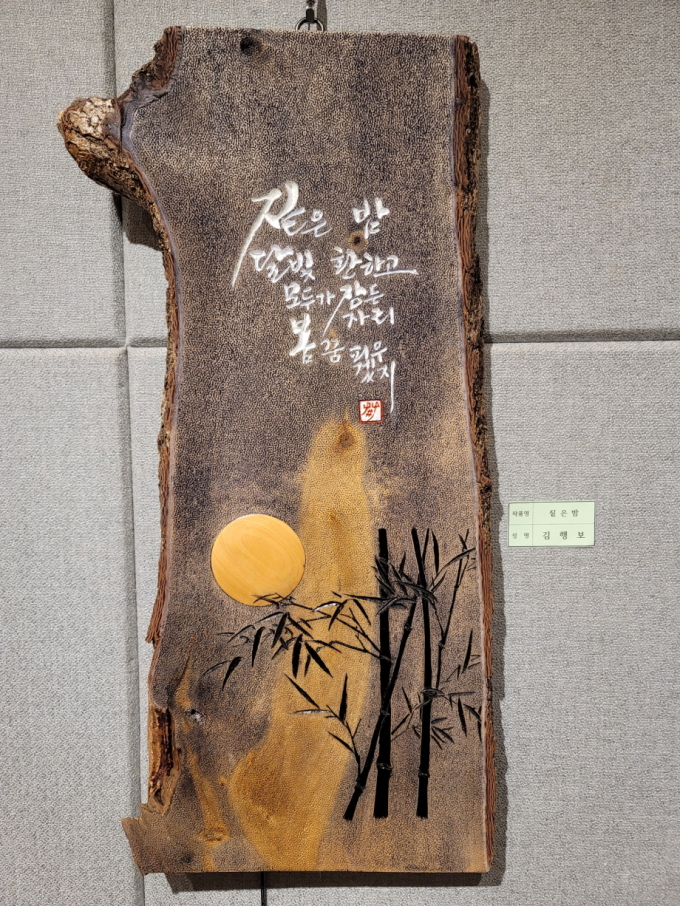 짙은 밤
달빛 환하고
모두가 잠든
자리
봄 꿈 피우
겠지
작품명 짙은밤
성 명 김행보